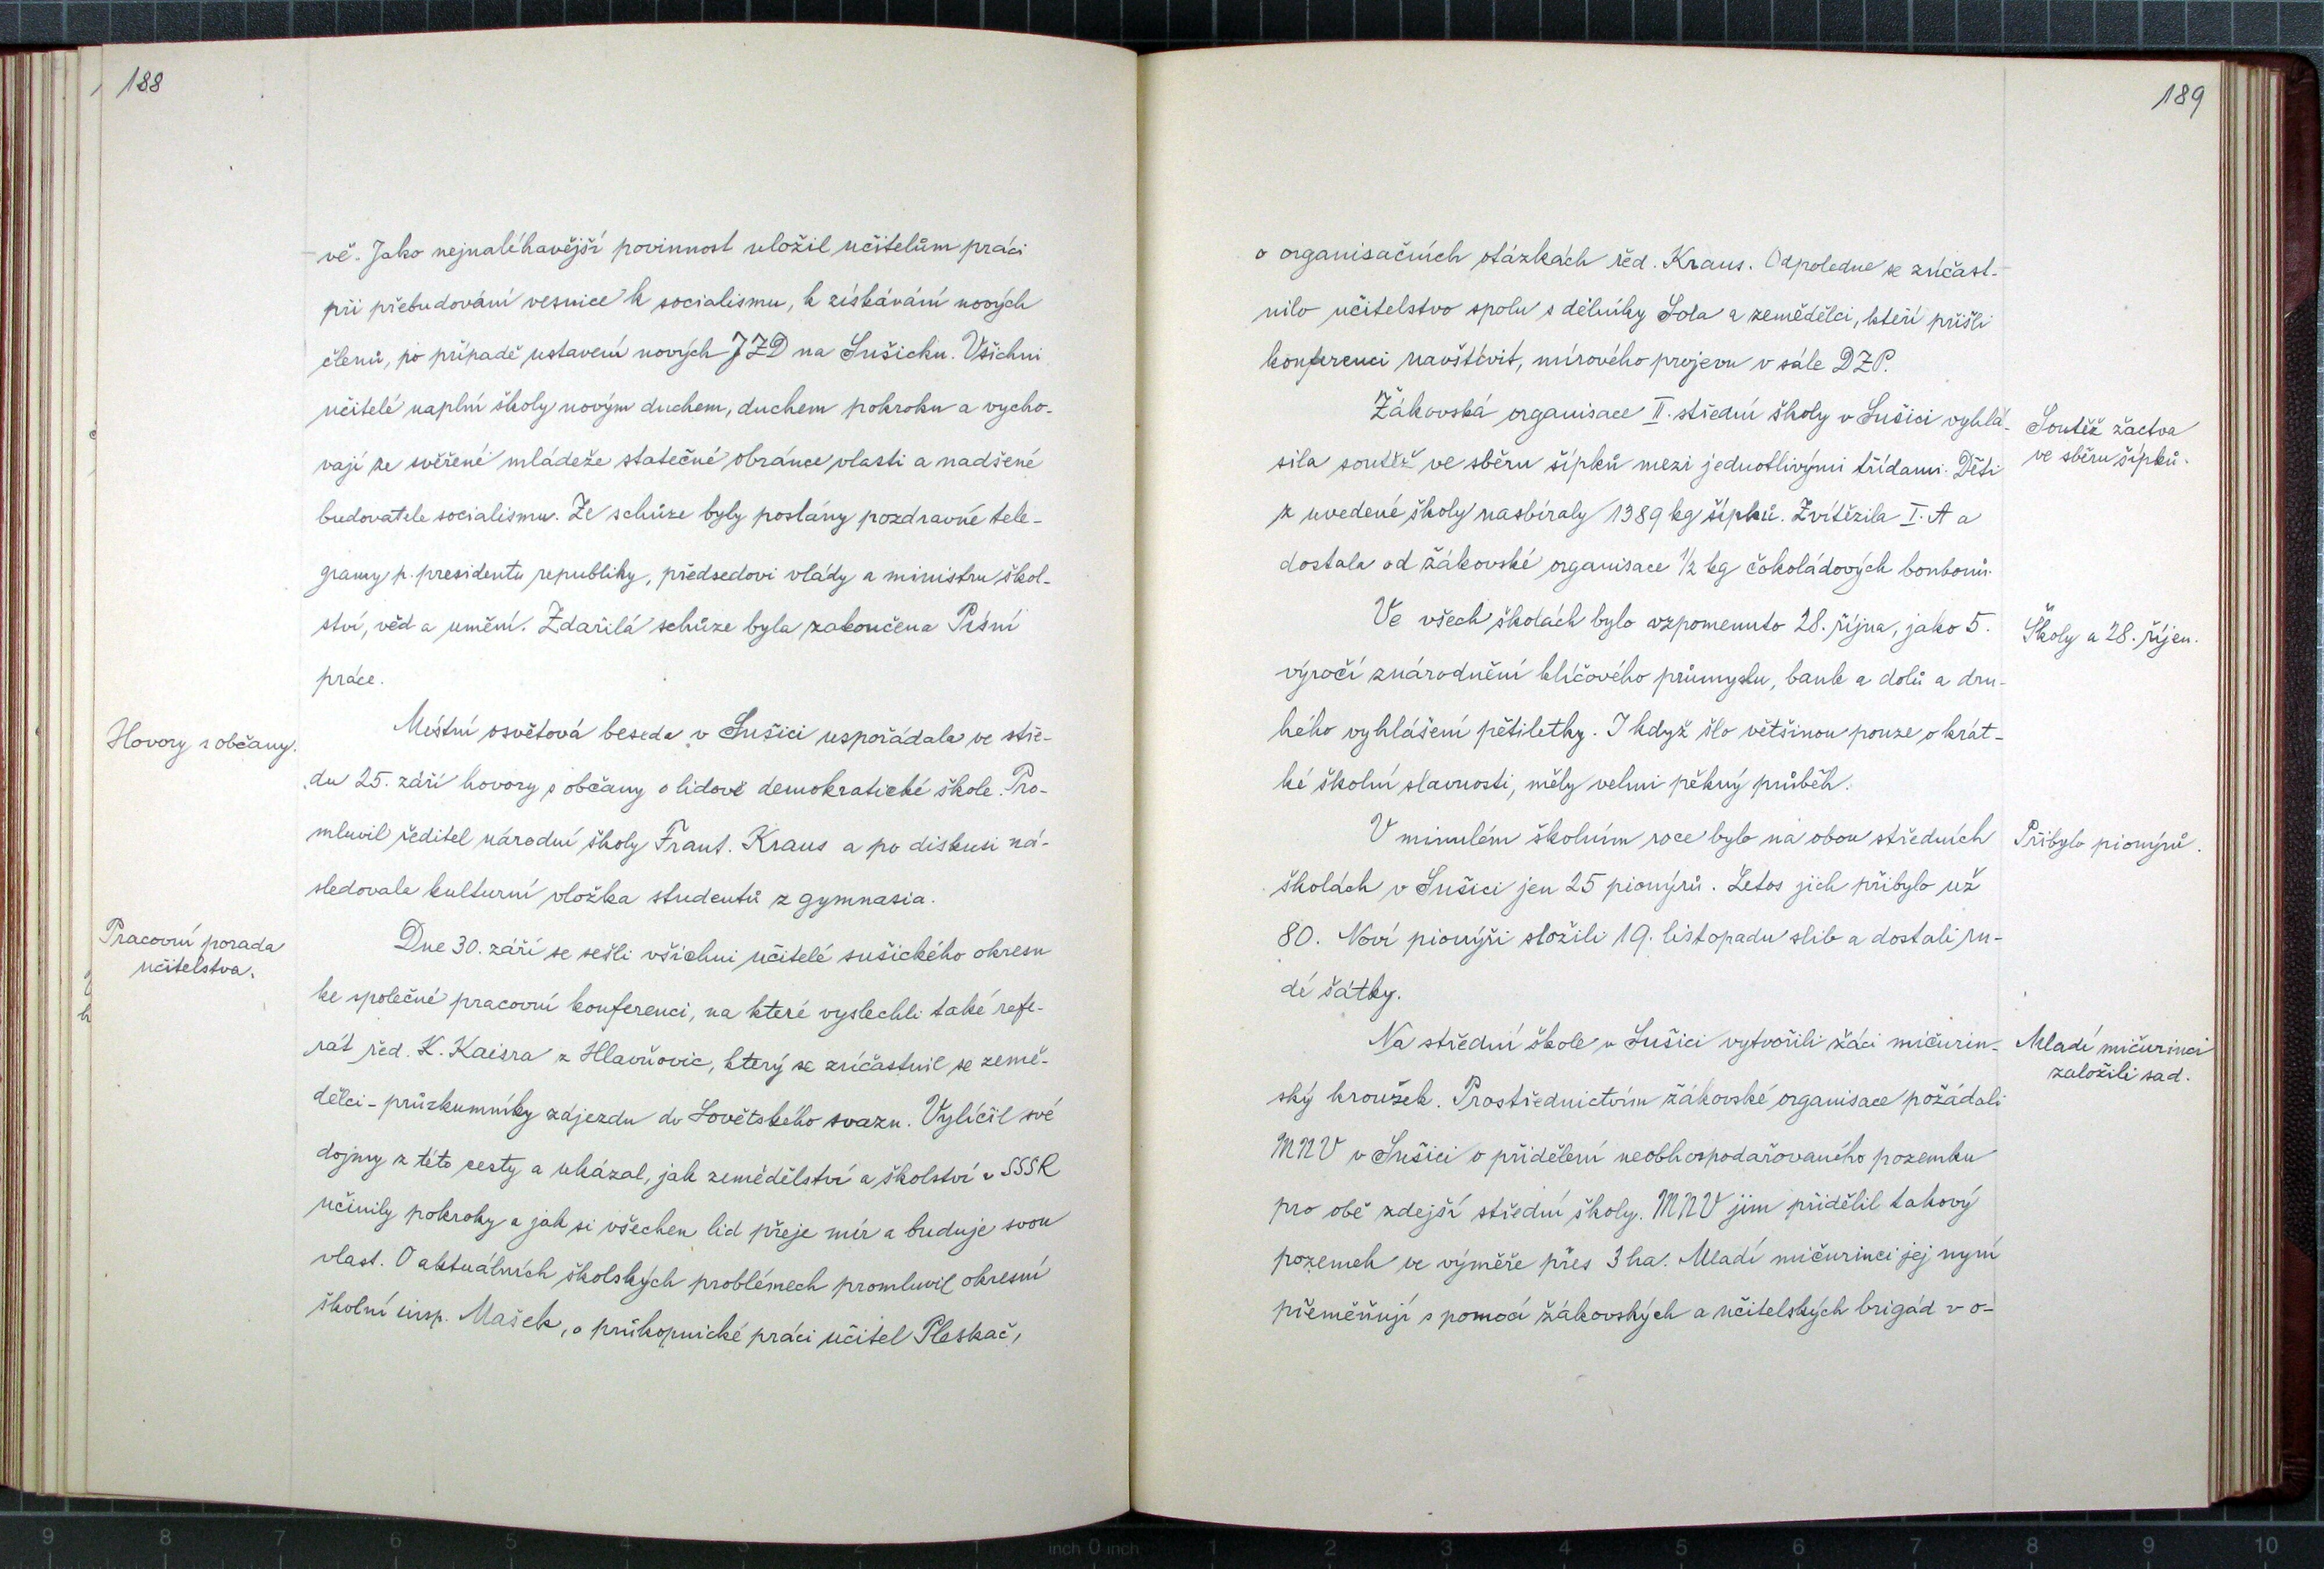 188
vě. Jako nejnaléhavější povinnost uložil učitelům práci
při přebudování vesnice k socialismu, k získávání nových
členů, po případě ustavení nových JZD na Sušicku. Všichni
učitelé naplní školy novým duchem, duchem pokroku a vycho-
vají ze svěřené mládeže statečné obránce vlasti a nadšené
budovatele socialismu. Ze schůze byly poslány pozdravné tele-
gramy p. presidentu republiky, předsedovi vlády a ministru škol-
ství, věd a umění. Zdařilá schůze byla zakončena Písní
práce.
Hovory s občany.
Místní osvětová beseda v Sušici uspořádala ve stře-
du 25. září hovory s občany o lidově demokratické škole. Pro-
mluvil ředitel národní školy Frant. Kraus a po diskusi ná-
sledovala kulturní vložka studentů z gymnasia.
Pracovní porada
učitelstva.
Dne 30. září se sešli všichni učitelé sušického okresu
ke společné pracovní konferenci, na které vyslechli také refe-
rát řed. K. Kaisra z Hlavňovic, který se zúčastnil se země-
dělci-průzkumníky zájezdu do Sovětského svazu. Vylíčil své
dojmy z této cesty a ukázal, jak zemědělství a školství v SSSR
učinily pokroky a jak si všechen lid přeje mír a buduje svou
vlast. O aktuálních školských problémech promluvil okresní
školní insp. Mašek, o průkopnické práci učitel Pleskač,
189
o organisačních otázkách řed. Kraus. Odpoledne se zúčast-
nilo učitelstvo spolu s dělníky Sola a zemědělci, kteří přišli
konferenci navštívit, mírového projevu v sále DZP.
Žákovská organisace II. střední školy v Sušici vyhlá-
sila soutěž ve sběru šípků mezi jednotlivými třídami. Děti
z uvedené školy nasbíraly 1389 kg šípků. Zvítězila I. A a
dostala od žákovské organisace 1/2 kg čokoládových bonbonů.
Soutěž žactva
ve sběru šípků.
Ve všech školách bylo vzpomenuto 28. října, jako 5.
výročí znárodnění klíčového průmyslu, bank a dolů a dru-
hého vyhlášení pětiletky. I když šlo většinou pouze o krát-
ké školní slavnosti, měly velmi pěkný průběh.
Školy a 28. říjen.
V minulém školním roce bylo na obou středních
školách v Sušici jen 25 pionýrů. Letos jich přibylo už
80. Noví pionýři složili 19. listopadu slib a dostali ru-
dé šátky.
Přibylo pionýrů.
Na střední škole v Sušici vytvořili žáci mičurin-
ský kroužek. Prostřednictvím žákovské organisace požádali
MNV v Sušici o přidělení neobhospodařovaného pozemku
pro obě zdejší střední školy. MNV jim přidělil takový
pozemek ve výměře přes 3 ha. Mladí mičurinci jej nyní
přeměňují s pomocí žákovských a učitelských brigád v o-
Mladí mičurinci
založili sad.
9 8 7 6 5 4 3 2 1 inch 0 inch 1 2 3 4 5 6 7 8 9 10